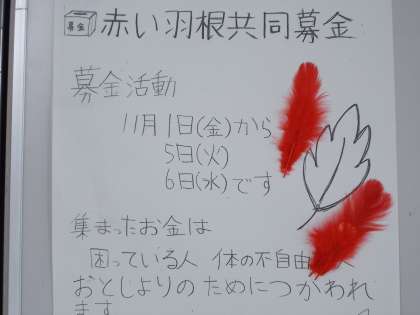 募金
赤い羽根共同募金
募金活動
11月1日(金)から
5日(火)
6日(水)です
集まったお金は
困っている人 体の不自由 人
おとしよりのためにつかわれ
ます